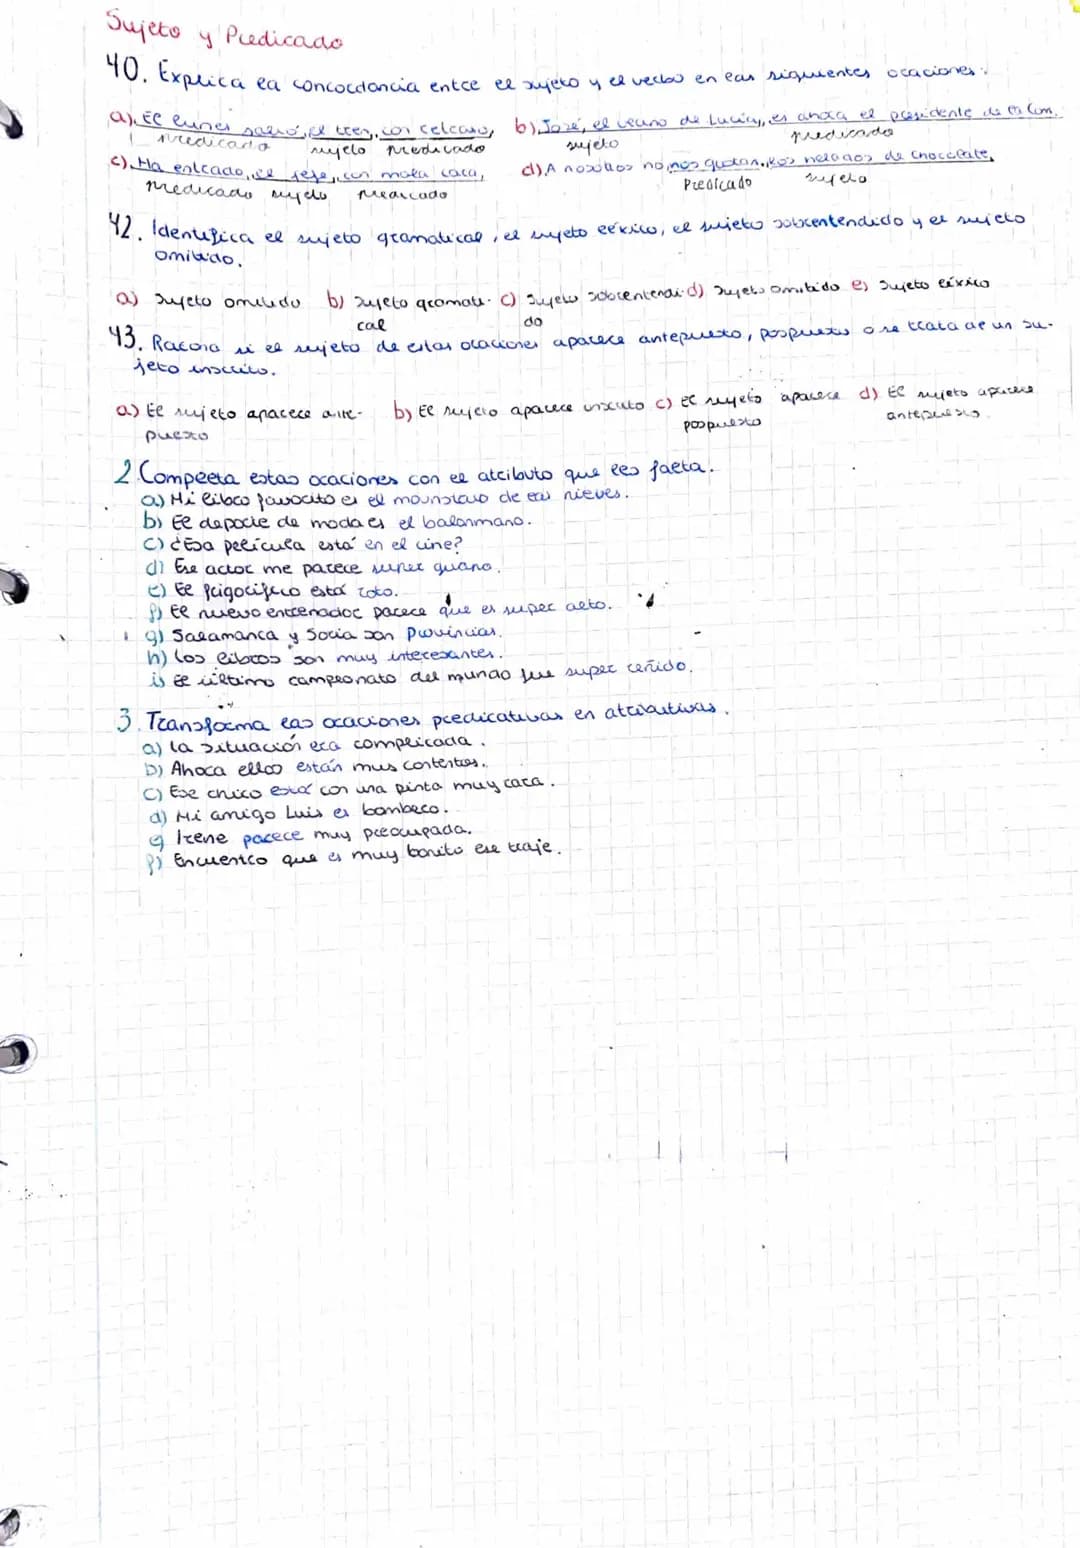 Sujeto y Predicado
40. Explica la concordancia entre el sujeto y el verbo en las siguientes oraciones:
a) El lunes salió, el tren, con retraso, b) José, el vecino de Lucía, es ahora el presidente de la Com.
predicado sujeto predicado sujeto predicado
c) Ha entrado, el jefe, con mala cara, d) A nosotros no nos gustan, los helados de chocolate,
predicado sujeto predicado Predicado sujeto
42. Identifica el sujeto gramatical, el sujeto léxico, el sujeto sobrentendido y el sujeto
omitido.
a) Sujeto omitido b) Sujeto gramati- c) Sujeto sobrentendi- d) Sujeto omitido e) Sujeto léxico
cal do
43. Razona si el sujeto de estas oraciones aparece antepuesto, pospuesto o se trata de un su-
jeto inscrito.
a) El sujeto aparece ante- b) El sujeto aparece inscrito c) El sujeto aparece d) El sujeto aparece
puesto pospuesto antepuesto
2. Completa estas oraciones con el atributo que les falta.
a) Mi libro favorito es el mounstruo de las nieves.
b) El deporte de moda es el balonmano.
c) ¿Esa película está en el cine?
d) Ese actor me parece super guapo.
e) El frigorífico está roto.
f) El nuevo entrenador parece que es super alto.
g) Salamanca y Soria son Provincias.
h) Los libros son muy interesantes.
i) El último campeonato del mundo fue super reñido.
3. Transforma las oraciones predicativas en atributivas.
a) La situación era complicada.
b) Ahora ellos están mus contentos.
c) Ese chico está con una pinta muy rara.
d) Mi amigo Luis es bombero.
e) Irene parece muy preocupada.
f) Encuentro que es muy bonito ese traje.